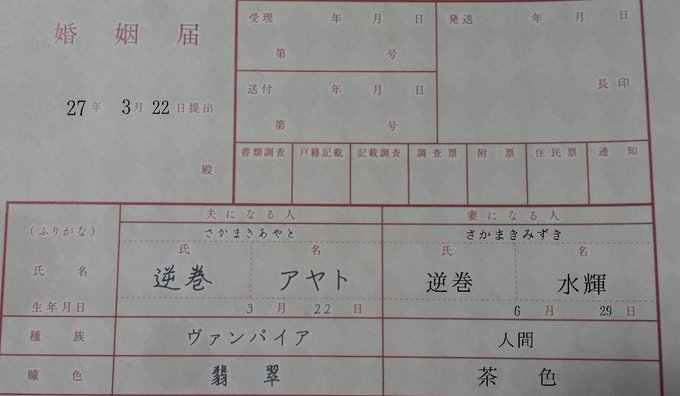 婚姻届
27年 3月 22日提出
殿
受理 年 月 日
第 号
送付 年 月 日
第 号
発送 年 月 日
長印
書類調査 戸籍記載 記載調査 調査票 附票 住民票 通知
夫になる人 妻になる人
(ふりがな) さかまきあやと さかまきみずき
氏 名 氏 名
氏名 逆巻 アヤト 逆巻 水輝
生年月日 3月 22日 6月 29日
種族 ヴァンパイア 人間
瞳色 翡翠 茶色